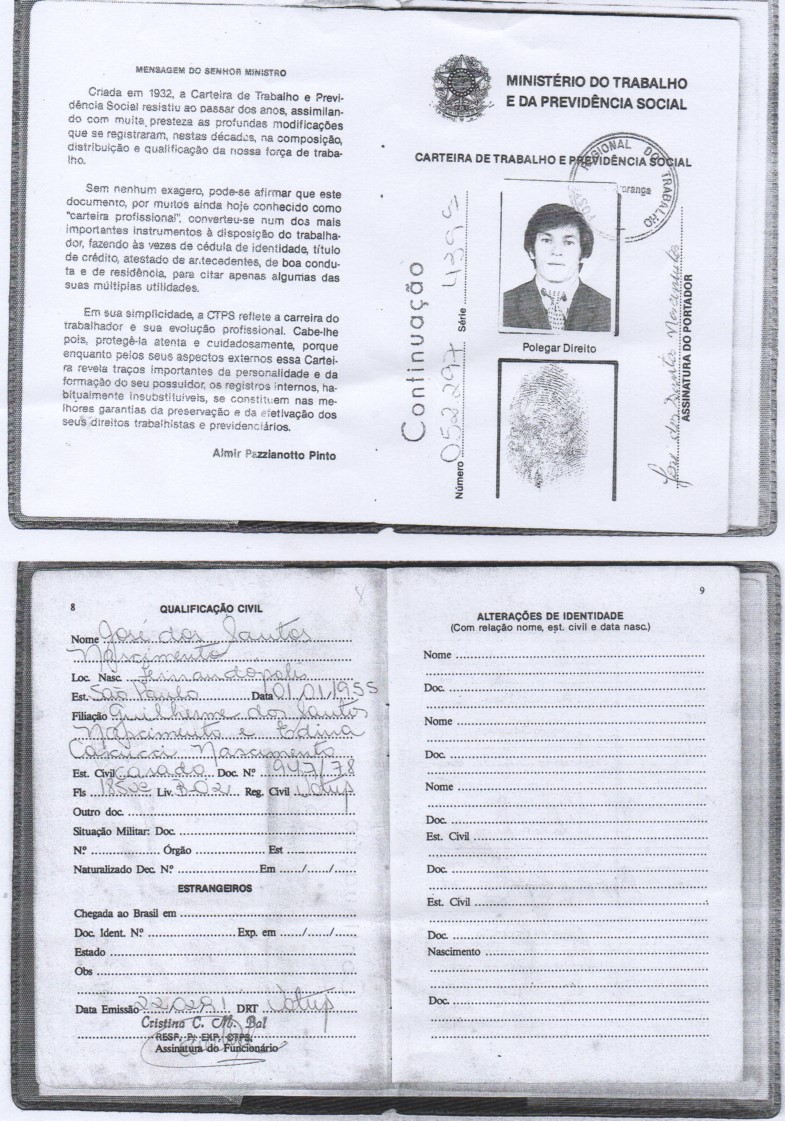 MENSAGEM DO SENHOR MINISTRO
Criada em 1932, a Carteira de Trabalho e Previ-
dência Social resistiu ao passar dos anos, assimilan-
do com muita presteza as profundas modificações
que se registraram, nestas décadas, na composição,
distribuição e qualificação da nossa força de traba-
lho.
Sem nenhum exagero, pode-se afirmar que este
documento, por muitos ainda hoje conhecido como
"carteira profissional", converteu-se num dos mais
importantes instrumentos à disposição do trabalha-
dor, fazendo às vezes de cédula de identidade, título
de crédito, atestado de antecedentes, de boa condu-
ta e de residência, para citar apenas algumas das
suas múltiplas utilidades.
Em sua simplicidade, a CTPS reflete a carreira do
trabalhador e sua evolução profissional. Cabe-lhe
pois, protegê-la atenta e cuidadosamente, porque
enquanto pelos seus aspectos externos essa Cartei-
ra revela traços importantes da personalidade e da
formação do seu possuidor, os registros internos, ha-
bitualmente insubstituíveis, se constituem nas me-
lhores garantias da preservação e da efetivação dos
seus direitos trabalhistas e previdenciários.
Almir Pazzianotto Pinto
MINISTÉRIO DO TRABALHO
E DA PREVIDÊNCIA SOCIAL
CARTEIRA DE TRABALHO E PREVIDÊNCIA SOCIAL
REGIONAL DO TRABALHO
Continuação
Número 052297 Série
Polegar Direito
José dos Santos Nascimento
ASSINATURA DO PORTADOR
8
QUALIFICAÇÃO CIVIL
Nome José dos Santos
Nascimento
Loc. Nasc. Fernandopolis
Est. São Paulo Data 01/01/1955
Filiação Guilherme dos Santos
Nascimento e Edina
Nascimento
Est. Civil Casado Doc. Nº 947/78
Fls Liv. B-02 Reg. Civil Votup
Outro doc.
Situação Militar: Doc.
N.º Órgão Est
Naturalizado Dec. N.º Em ....../....../......
ESTRANGEIROS
Chegada ao Brasil em
Doc. Ident. N.º Exp. em ....../....../......
Estado
Obs
Data Emissão 220291 DRT Votup
Cristina C. M. Bal
RESP. P/ EXP. CTPS
Assinatura do Funcionário
9
ALTERAÇÕES DE IDENTIDADE
(Com relação nome, est. civil e data nasc.)
Nome
Doc.
Nome
Doc.
Nome
Doc.
Est. Civil
Doc.
Est. Civil
Doc.
Nascimento
Doc.